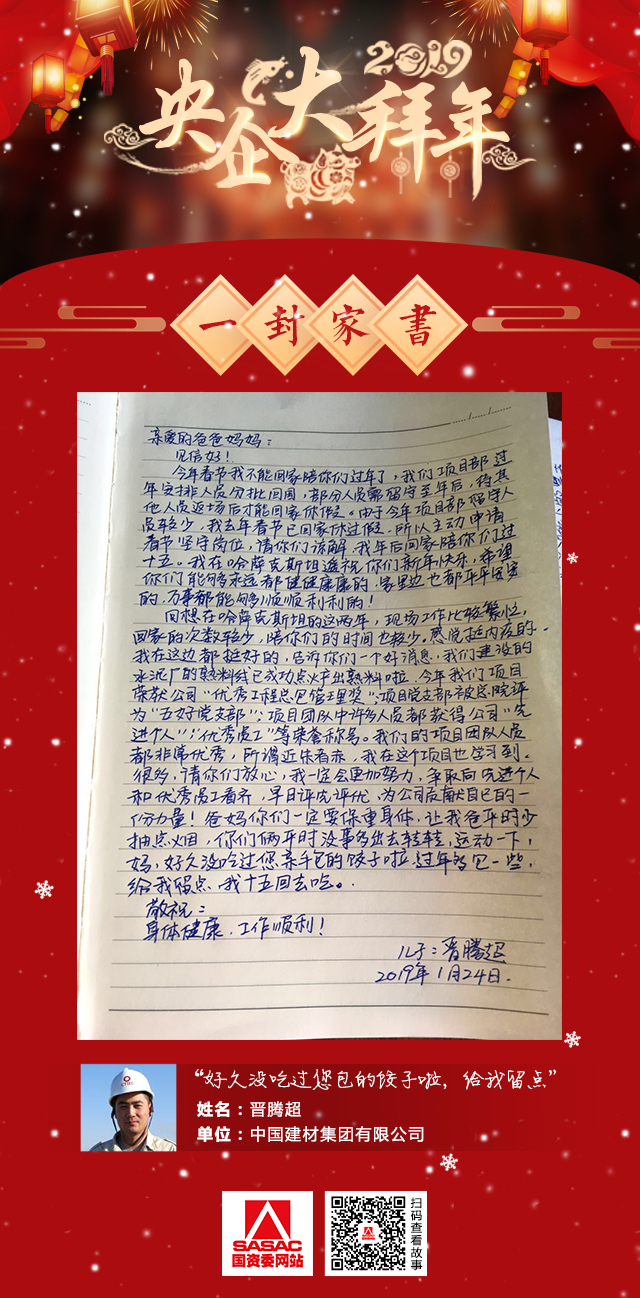 2019
央企大拜年
一封家书
亲爱的爸爸妈妈：
见信好！
今年春节我不能回家陪你们过年了，我们项目部过
年安排人员分批回国，部分人员需留守至年后，待其
他人员返场后才能回家休假。由于今年项目部留守人
员较少，我去年春节已回家休过假，所以主动申请
春节坚守岗位，请你们谅解，我年后回家陪你们过
十五。我在哈萨克斯坦遥祝你们新年快乐，希望
你们能够永远都健健康康的，家里边也都平平安安
的，万事都能够顺顺利利的！
回想在哈萨克斯坦的这两年，现场工作比较繁忙，
回家的次数较少，陪你们的时间也较少。感觉挺内疚的。
我在这边都挺好的，告诉你们一个好消息，我们建设的
水泥厂的熟料线已成功点火产出熟料啦，今年我们项目
荣获公司“优秀工程总包管理奖”；项目党支部被总院评
为“五好党支部”；项目团队中许多人员都获得公司“先
进个人”；“优秀员工”等荣誉称号。我们的项目团队人员
都非常优秀，所谓近朱者赤，我在这个项目也学习到
很多，请你们放心，我一定会更加努力，争取向先进个人
和优秀员工看齐，早日评先评优，为公司贡献自己的一
份力量！爸妈你们一定要保重身体，让我爸平时少
抽点烟，你们俩平时没事多出去转转，运动一下，
妈，好久没吃过您亲手包的饺子啦，过年多包一些，
给我留点，我十五回去吃。
敬祝：
身体健康、工作顺利！
儿子：晋腾超
2019年1月24日.
“好久没吃过您包的饺子啦，给我留点”
姓名：晋腾超
单位：中国建材集团有限公司
SASAC
国资委网站
扫码查看故事